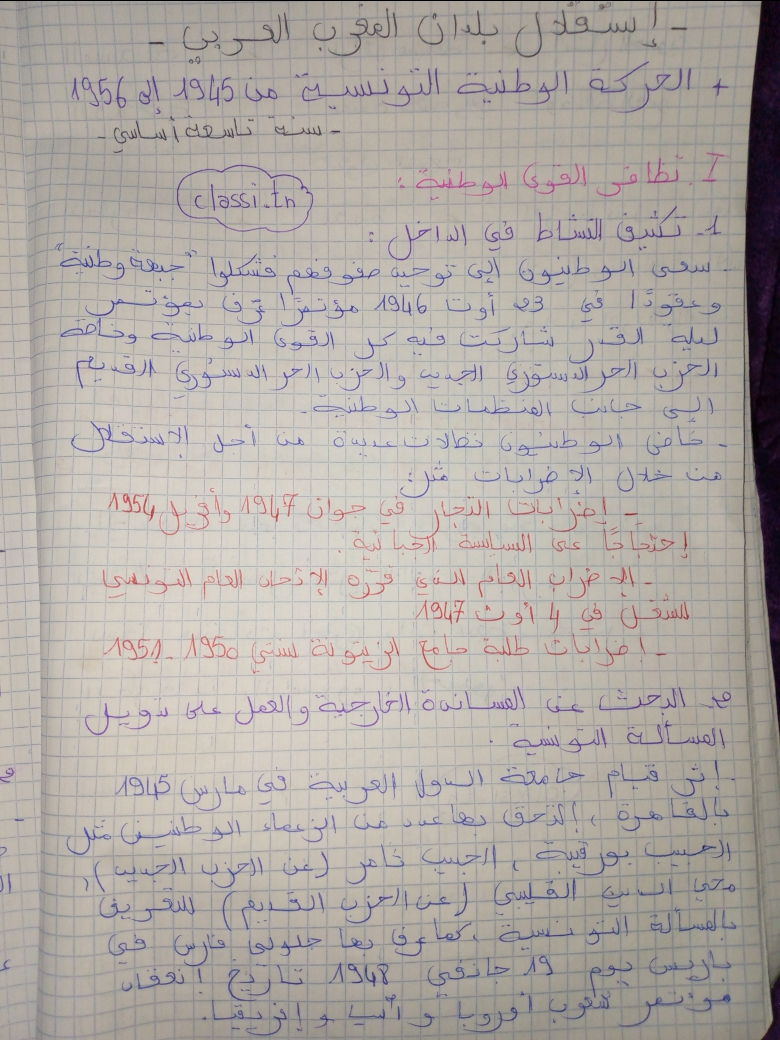 - إستقلال بلدان المغرب العربي -
+ الحركة الوطنية التونسية من 1945 إلى 1956
- سنة تاسعة أساسي -
I. تظافر القوى الوطنية :
classi.tn
1- تكثيف النشاط في الداخل :
- سعى الوطنيون إلى توحيد صفوفهم فشكلوا "جبهة وطنية"
وعقودًا في 23 أوت 1946 مؤتمرًا عرف بمؤتمر
ليلة القدر شاركت فيه كل القوى الوطنية وخاصة
الحزب الحر الدستوري الجديد والحزب الحر الدستوري القديم
إلى جانب المنظمات الوطنية.
- خاض الوطنيون نظالات عديدة من أجل الإستقلال
من خلال الإضرابات مثل:
- إضرابات التجار في جوان 1947 وأفريل 1954
إحتجاجًا على السياسة الجبائية.
- الإضراب العام الذي قرّره الإتحاد العام التونسي
للشغل في 4 أوت 1947
- إضرابات طلبة جامع الزيتونة لسنتي 1950 - 1951
2- البحث عن المساندة الخارجية والعمل على تدويل
المسألة التونسية .
- إثر قيام جامعة الدول العربية في مارس 1945
بالقاهرة ، إلتحق بها عدد من الزعماء الوطنيين مثل
الحبيب بورقيبة ، الحبيب ثامر (عن الحزب الجديد)،
محي الدين القليبي (عن الحزب القديم) للتعريف
بالمسألة التونسية ، كما عرف بها جلولي فارس في
باريس يوم 19 جانفي 1948 تاريخ إنعقاد
مؤتمر شعوب أوروبا و آسيا و إفريقيا.